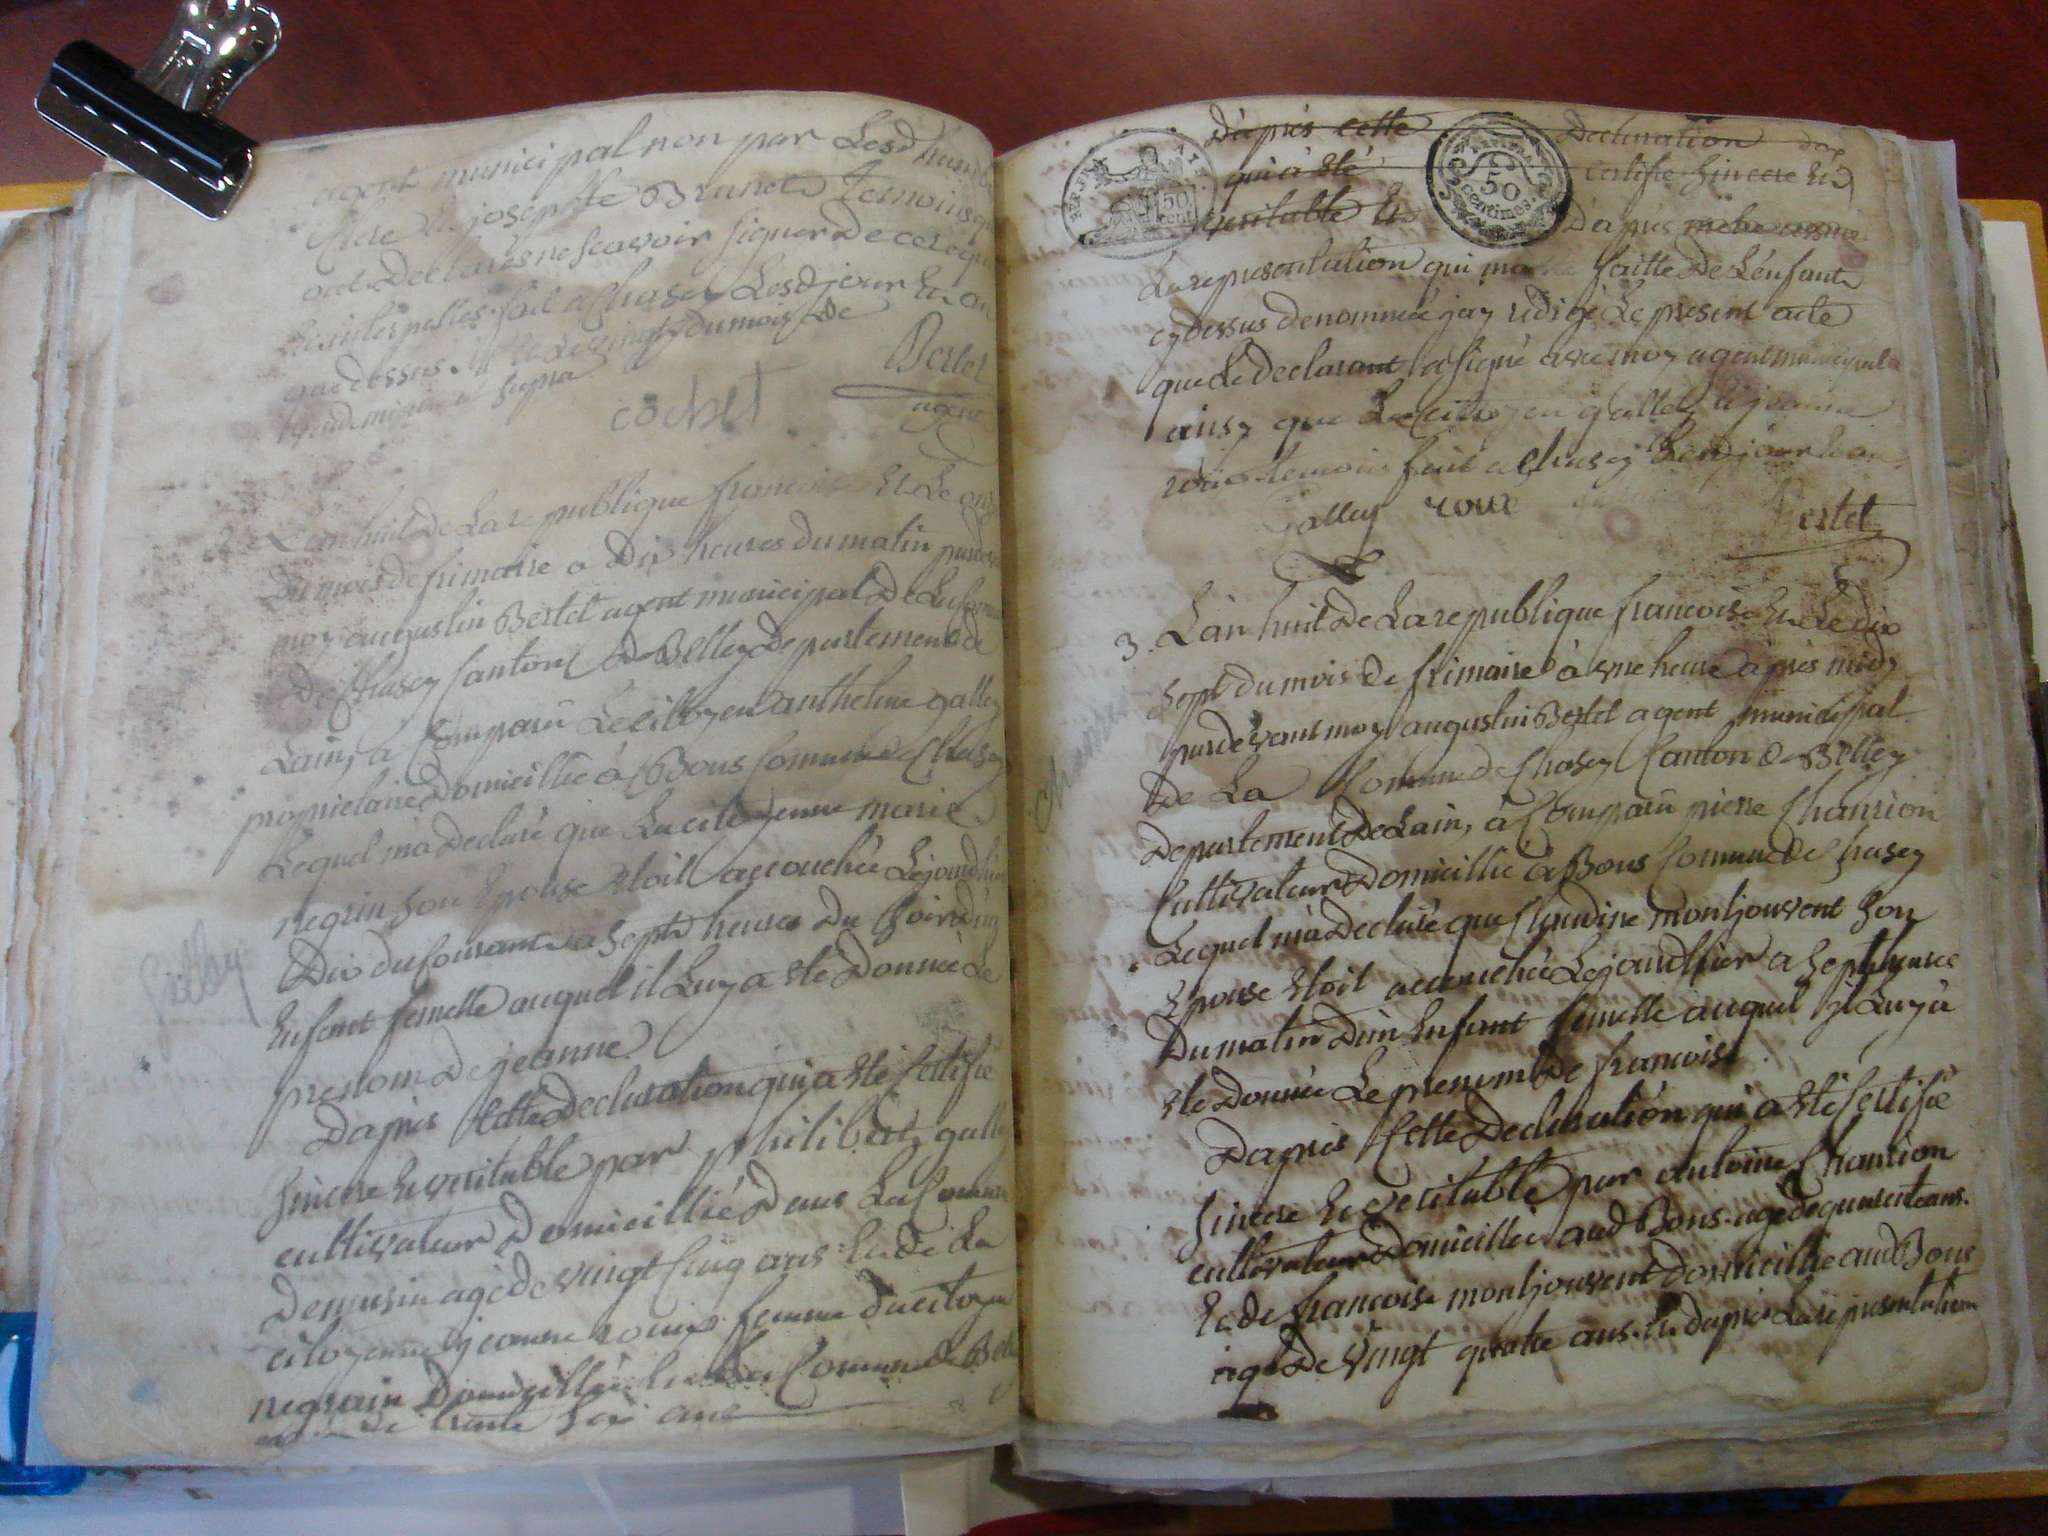 agent municipal non par Lesd humbert
Clere & josephte Brunet Temoins qui
ont Declarés ne scavoir signer De ce requis
Et interpelles. fait a Chasey Lesd jour Et an
que dessus.
Bertet
cochet
agent
2 L'an huit de La republique francoise Et Le onze
Du mois de frimaire a Dix heures du matin pardevant
moy augustin Bertet agent municipal De La Commune
De Chasey Canton de Belley Departement de
Lain, a Comparu Le citoyen anthelme galley
proprietaire Domicillié à Bons Commune de Chasey
Lequel m'a Declaré que La citoyenne marie
negrin son Epouse Etoit accouchée Lejourdhier
Dix du Courant a sept heures Du soir d'un
Enfant femelle auquel il Luy a eté Donnée Le
prenom De jeanne
Dapres Cette Declaration qui a eté Certifié
sincere Et veritable par philibert galley
cultivateur Domicillié Dans La Commune
De musin agé de vingt Cinq ans Et de La
citoyenne jeanne roux femme du citoyen
negrain Domicillié de La Commune de Belley
de trante six ans
galley
D'après cette Declaration
qui à eté certifié sincere Et
veritable Et D'apres
La representation qui m'a faitte De L'enfant
cy dessus denommée j'ay redigé Le present acte
que Le Declarant a signé avec moy agent municipal
ainsy que Le citoyen galley & jeanne
roux temoin fait a Chasey Lesd jour Et an.
Galley roux Bertet
REP. FRA
50
cent
REP. FRA.
50
Centimes.
3. L'an huit De La republique francoise Et Le dix
sept du mois de frimaire à une heure après midy
pardevant moy augustin Bertet agent municipal
de La Commune de Chasey Canton de Belley
Departement De Lain, à Comparu pierre Chanrion
Cultivateur Domicillié à Bons Commune de Chasey
Lequel m'a Declaré que Claudine montjouvent son
Epouse Etoit accouchée Lejourdhier a sept heures
Du matin D'un Enfant femelle auquel il Luy à
eté Donnée Le prenom De francoise.
Dapres Cette Declaration qui a eté Certifié
sincere Et veritable par antoine Chanrion
cultivateur Domicillié aud Bons. agé de quarante ans.
Et de francoise montjouvent Domicillié aud Bons
agé De vingt quatre ans. Et dapres La representation